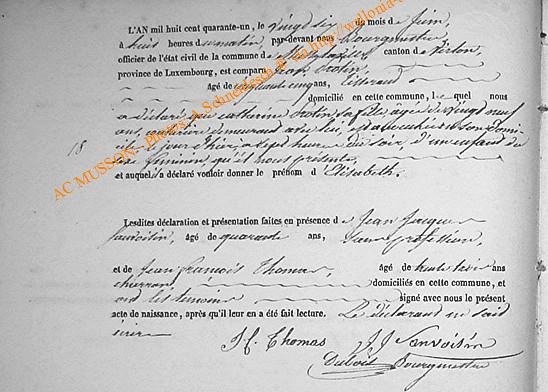 L'AN mil huit cent quarante-un, le vingt six du mois de juin,
à huit heures du matin, par-devant nous Bourgmestre
officier de l'état civil de la commune de canton de Virton,
province de Luxembourg, est comparu Jean
âgé de cinquante cinq ans,
domicilié en cette commune, lequel nous
a déclaré que catherine sa fille âgée de vingt neuf
ans, demeurant avec lui, est accouchée en son Domi-
18 cile le jour d'hier, a sept heures du soir, d'un enfant de
sexe féminin qu'il nous présente,
et auquel a déclaré vouloir donner le prénom d'Elisabeth.
Lesdites déclaration et présentation faites en présence de Jean Jacques
âgé de quarante ans, sans profession,
et de Jean françois Thomas, âgé de trente trois ans
domiciliés en cette commune, et
ont les témoins signé avec nous le présent
acte de naissance, après qu'il leur en a été fait lecture. Le déclarant ne sait
écrire
J f Thomas J J Sanvoisin
Dubois Bourgmestre
AC MUSSON - Photos: A. Schneidesch @ via http://wallonia